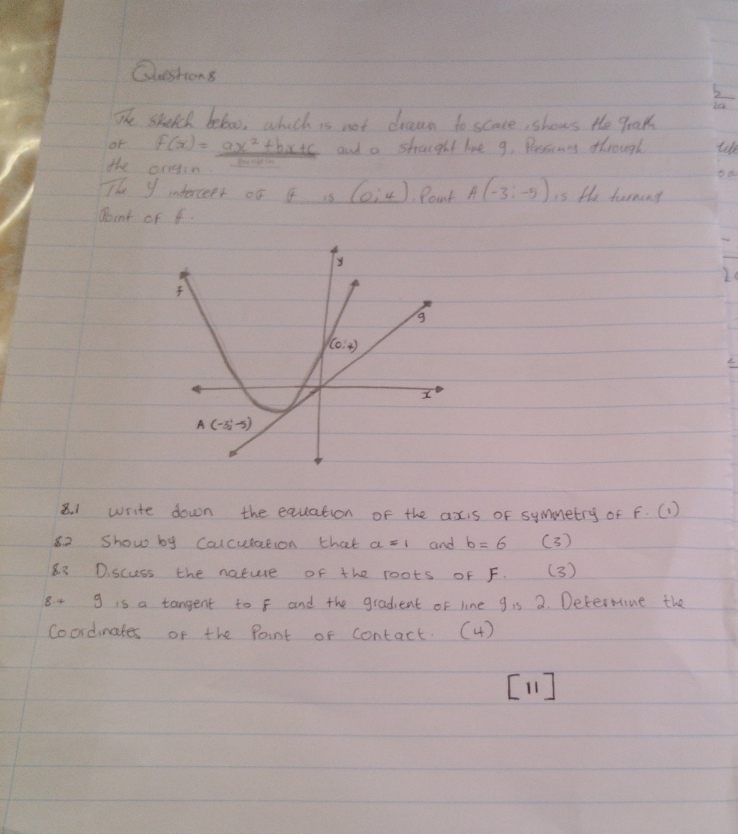 Questions
The sketch below, which is not drawn to scale, shows the Graph
of f(x) = ax² + bx + c and a straight line g. Passing through
the origin.
The y intercept of f is (0;4). Point A(-3;-5) is the turning
Point of f.
y
f
g
(0;4)
x
A (-3;-5)
8.1 Write down the equation of the axis of symmetry of f. (1)
8.2 Show by calculation that a = 1 and b = 6 (3)
8.3 Discuss the nature of the roots of f. (3)
8.4 g is a tangent to f and the gradient of line g is 2. Determine the
Coordinates of the Point of contact. (4)
[11]